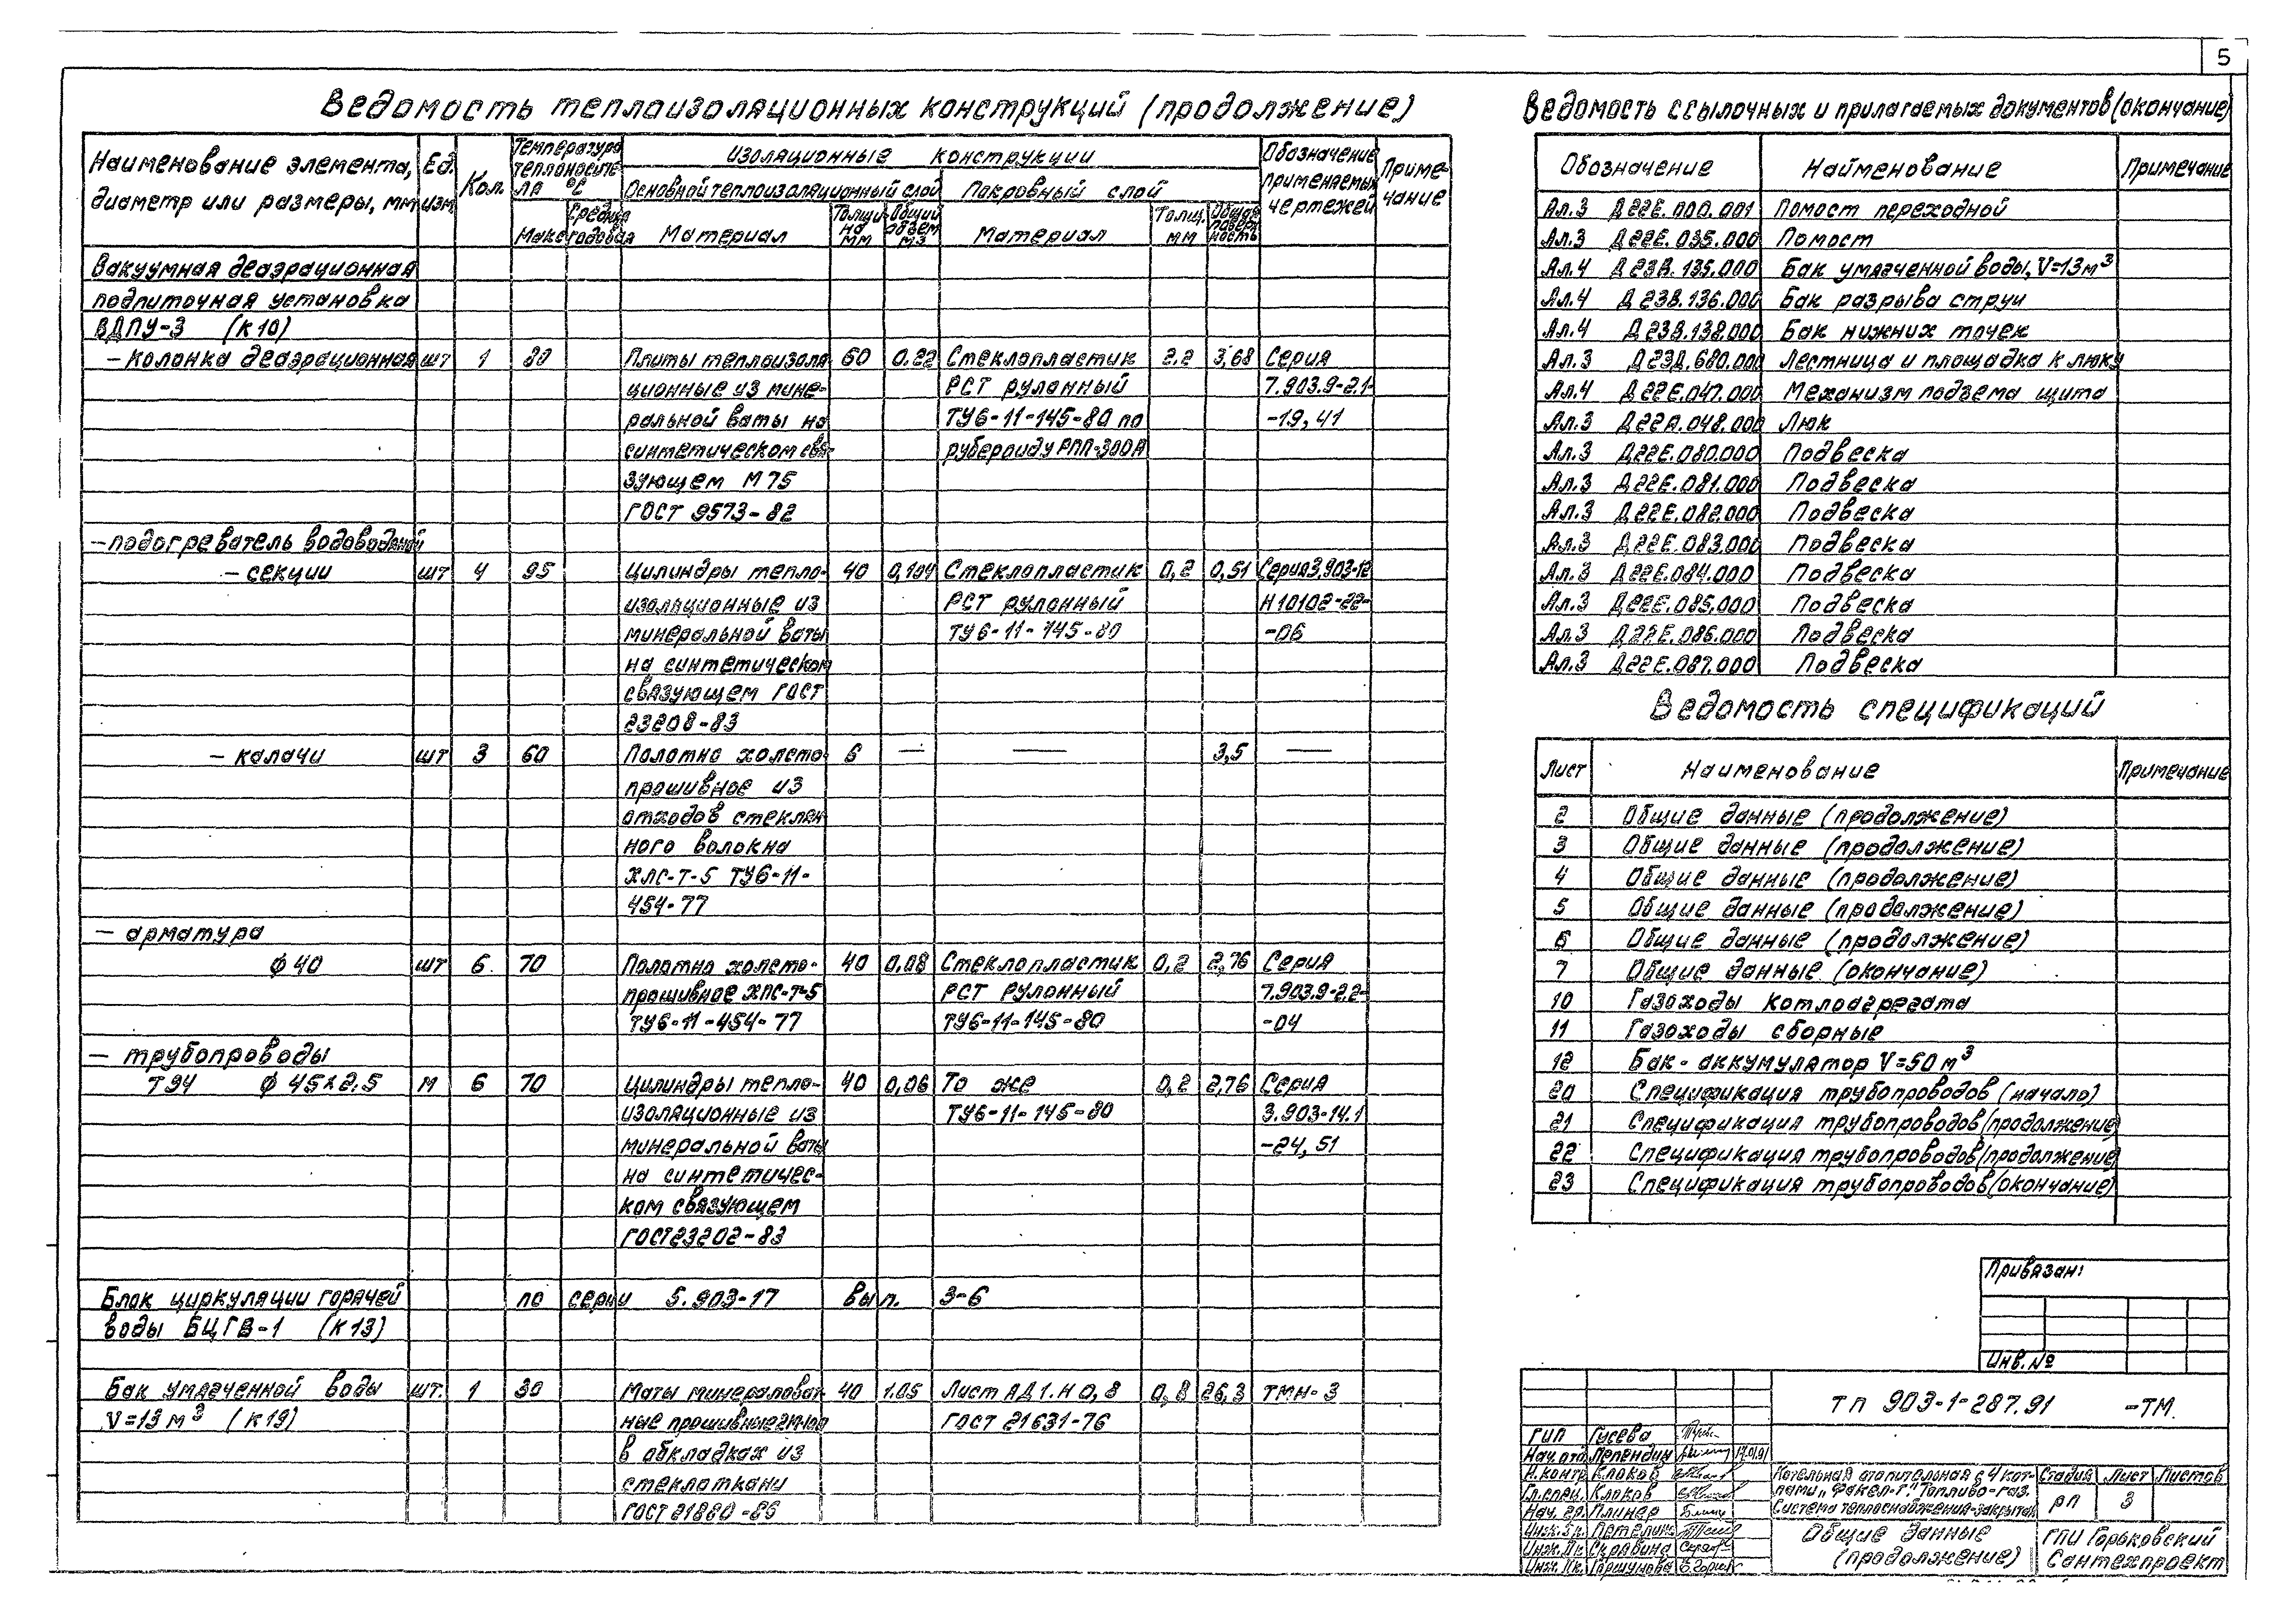 5
Ведомость теплоизоляционных конструкций (продолжение)
Наименование элемента, диаметр или размеры, мм
Ед. изм
Кол.
Температура теплоносителя °С
Макс
Средне годовая
Изоляционные конструкции
Основной теплоизоляционный слой
Покровный слой
Материал
Толщина мм
Общий объем м3
Материал
Толщ. мм
Общая поверхность
Обозначение применяемых чертежей
Примечание
Вакуумная деаэрационная
подпиточная установка
ВДПУ-3 (К10)
- колонка деаэрационная шт 1 80 Плиты теплоизоля 60 0.22 Стеклопластик 2.2 3,68 Серия
ционные из мине- РСТ рулонный 7.903.9-2.1-
ральной ваты на ТУ6-11-145-80 по -19,41
синтетическом свя- рубероиду РПП-300А
зующем М75
ГОСТ 9573-82
- подогреватель водоводяной
- секции шт 4 95 Цилиндры тепло- 40 0,104 Стеклопластик 0,2 0,51 Серия 3.903-12
изоляционные из РСТ рулонный Н10102-22-
минеральной ваты ТУ6-11-145-80 -06
на синтетическом
связующем ГОСТ
23208-83
- калачи шт 3 60 Полотно холсто- 6 — — 3,5 —
прошивное из
отходов стеклян
ного волокна
ХПС-Т-5 ТУ6-11-
454-77
- арматура
ф 40 шт 6 70 Полотно холсто- 40 0,08 Стеклопластик 0,2 2,76 Серия
прошивное ХПС-Т-5 РСТ рулонный 7.903.9-2.2-
ТУ6-11-454-77 ТУ6-11-145-80 -04
- трубопроводы
Т94 ф 45х2.5 м 6 70 Цилиндры тепло- 40 0,06 То же 0,2 2,76 Серия
изоляционные из ТУ6-11-145-80 3.903-14.1
минеральной ваты -24,51
на синтетичес-
ком связующем
ГОСТ 23202-83
Блок циркуляции горячей по серии 5.903-17 вып. 3-6
воды БЦГВ-1 (К13)
Бак умягченной воды шт. 1 30 Маты минераловат- 40 1.05 Лист АД1.Н 0,8 0,8 26,3 ТМН-3
V=13 м³ (К19) ные прошивные ГОСТ 21631-76
в обкладках из
стеклоткани
ГОСТ 21880-86
Ведомость ссылочных и прилагаемых документов (окончание)
Обозначение Наименование Примечание
Ал.3 Д22Е.000.001 Помост переходной
Ал.3 Д22Е.035.000 Помост
Ал.4 Д23В.135.000 Бак умягченной воды, V=13м³
Ал.4 Д23В.136.000 Бак разрыва струи
Ал.4 Д23В.138.000 Бак нижних точек
Ал.3 Д23Д.680.000 Лестница и площадка к люку
Ал.4 Д22Е.047.000 Механизм подъема щита
Ал.3 Д22А.048.000 Люк
Ал.3 Д22Е.080.000 Подвеска
Ал.3 Д22Е.081.000 Подвеска
Ал.3 Д22Е.082.000 Подвеска
Ал.3 Д22Е.083.000 Подвеска
Ал.3 Д22Е.084.000 Подвеска
Ал.3 Д22Е.085.000 Подвеска
Ал.3 Д22Е.086.000 Подвеска
Ал.3 Д22Е.087.000 Подвеска
Ведомость спецификаций
Лист Наименование Примечание
2 Общие данные (продолжение)
3 Общие данные (продолжение)
4 Общие данные (продолжение)
5 Общие данные (продолжение)
6 Общие данные (продолжение)
7 Общие данные (окончание)
10 Газоходы котлоагрегата
11 Газоходы сборные
12 Бак-аккумулятор V=50 м³
20 Спецификация трубопроводов (начало)
21 Спецификация трубопроводов (продолжение)
22 Спецификация трубопроводов (продолжение)
23 Спецификация трубопроводов (окончание)
Привязан:
Инв. №
ТП 903-1-287.91 -ТМ.
ГИП Гусева
Нач. отд. Лепендин
Н.контр. Клоков
Гл.спец. Клоков
Нач. гр. Плинер
Инж. Iк. Петелин
Инж. IIк. Скрябина
Инж. IIк. Горшунова
Котельная отопительная с 4 кот-
лами „Факел-Г." Топливо-газ.
Система теплоснабжения-закрытая
Стадия Лист Листов
РП 3
Общие данные
(продолжение)
ГПИ Горьковский
Сантехпроект